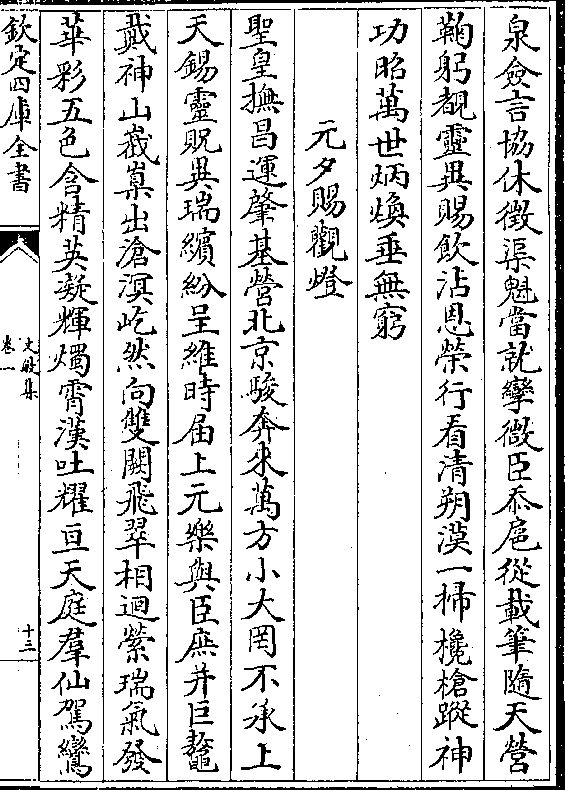 泉僉言協休徵渠魁當就孿微臣忝扈從載筆隨天營
鞠躬覩靈異賜飲沾恩榮行看清朔漠一掃欃槍蹤神
功昭萬世炳煥垂無窮
元夕賜觀燈
聖皇撫昌運肇基營北京駿奔來萬方小大罔不承上
天錫靈貺異瑞繽紛呈維時屆上元樂與臣庶并巨鼇
戴神山嶻嶪出滄溟屹然向雙闕飛翠相迴縈瑞氣發
華彩五色含精英凝輝燭霄漢吐耀亘天庭羣仙駕鸞
欽定四庫全書
文敏集
卷一
十三